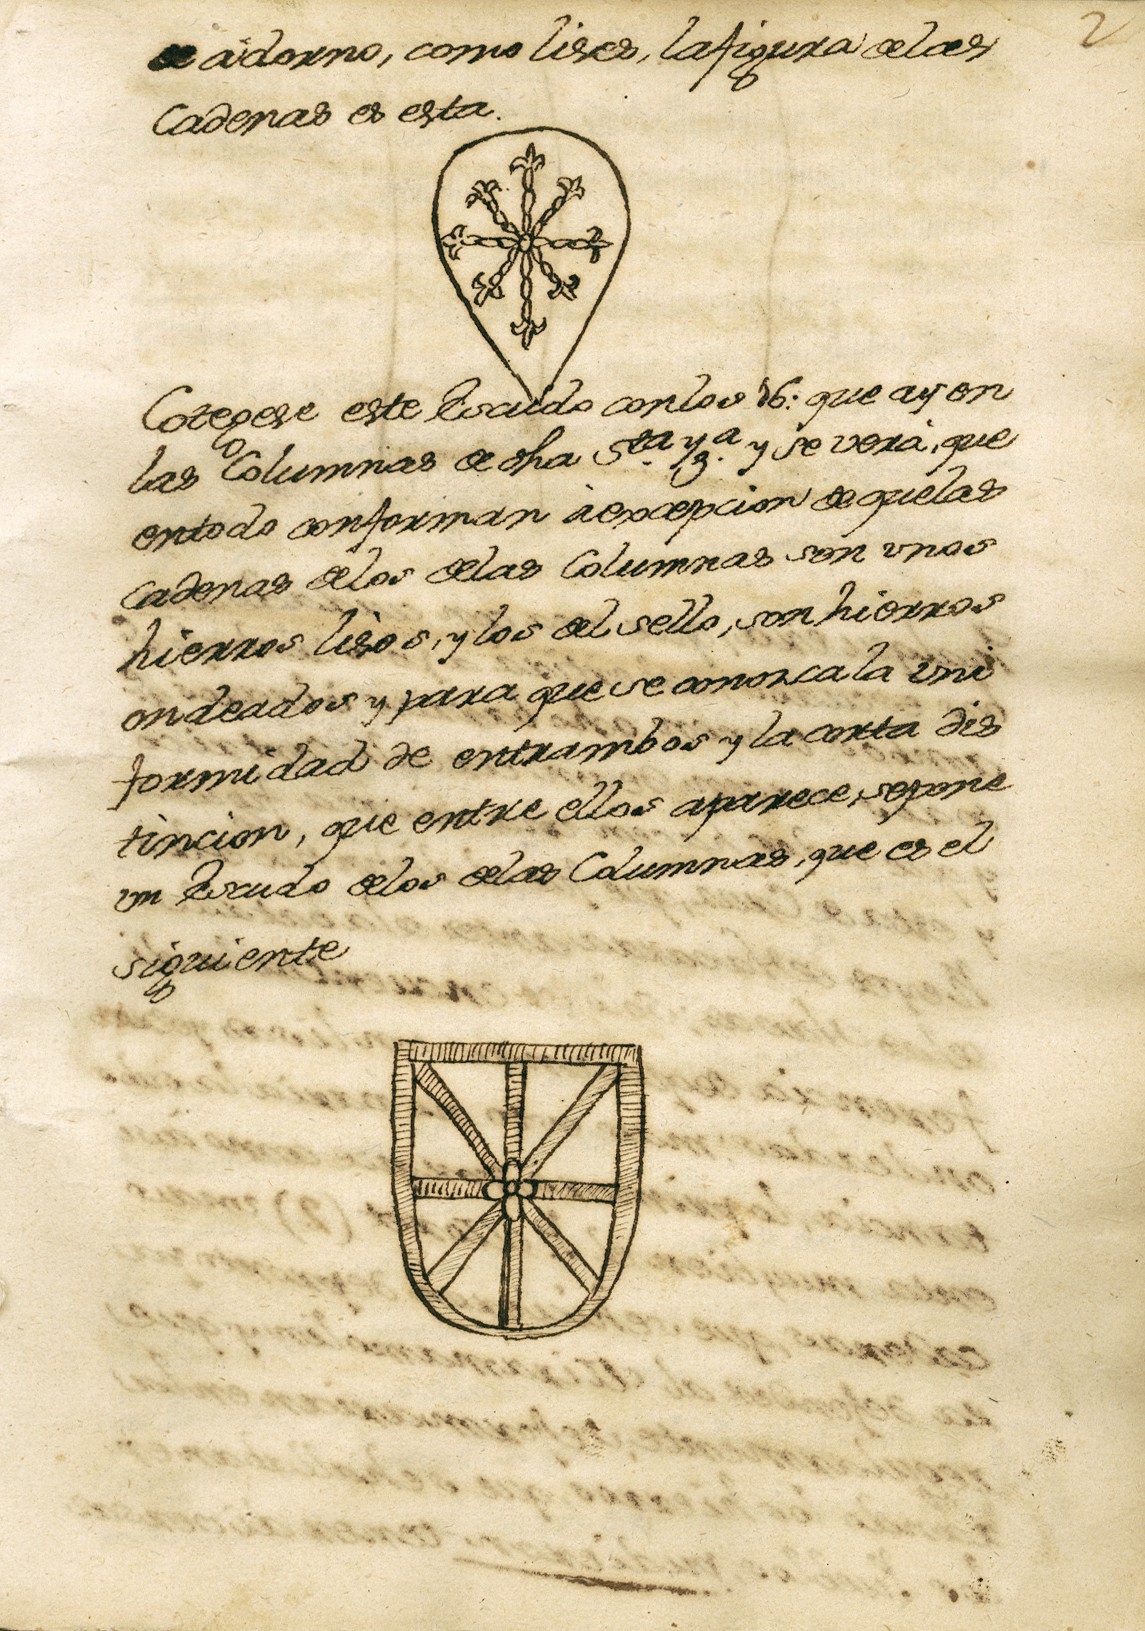 2
de adorno, como lises, la figura de las
Cadenas es esta.
Cotegese este Escudo con los 16: que ay en
las Columnas de dha Sta. yga. y se verà, que
entodo conforman à excepcion de que las
cadenas de los de las Columnas son vnos
hierros lisos, y los del sello, son hierros
ondeados y para que se conosca la vni
formidad de entrambos y la corta dis
tincion, que entre ellos aparece, se pone
vn Escudo de los de las Columnas, que es el
siguiente